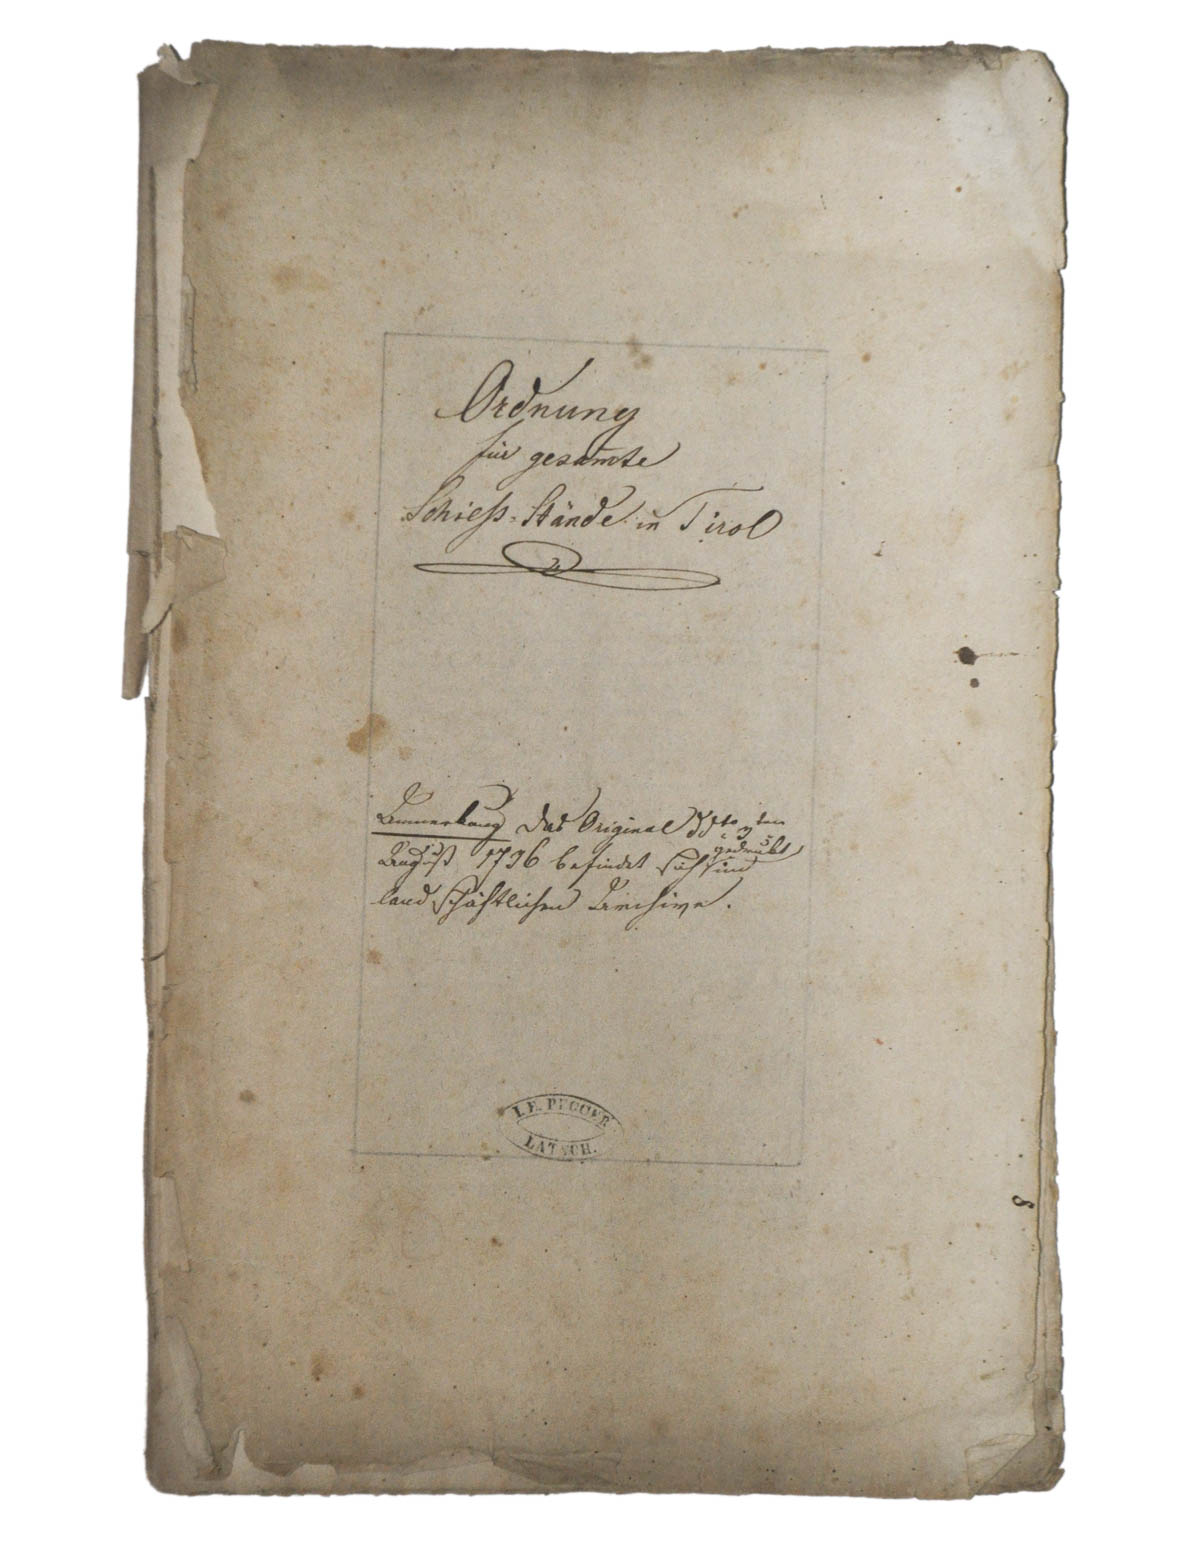 Ordnung
für gesamte
Schieß-Stände in Tirol
Anmerkung das Original ddto 9ten
gedrukt
August 1736 befindet sich im
landschäftlichen Archive.
I. F. PEGGER
LATSCH.
8